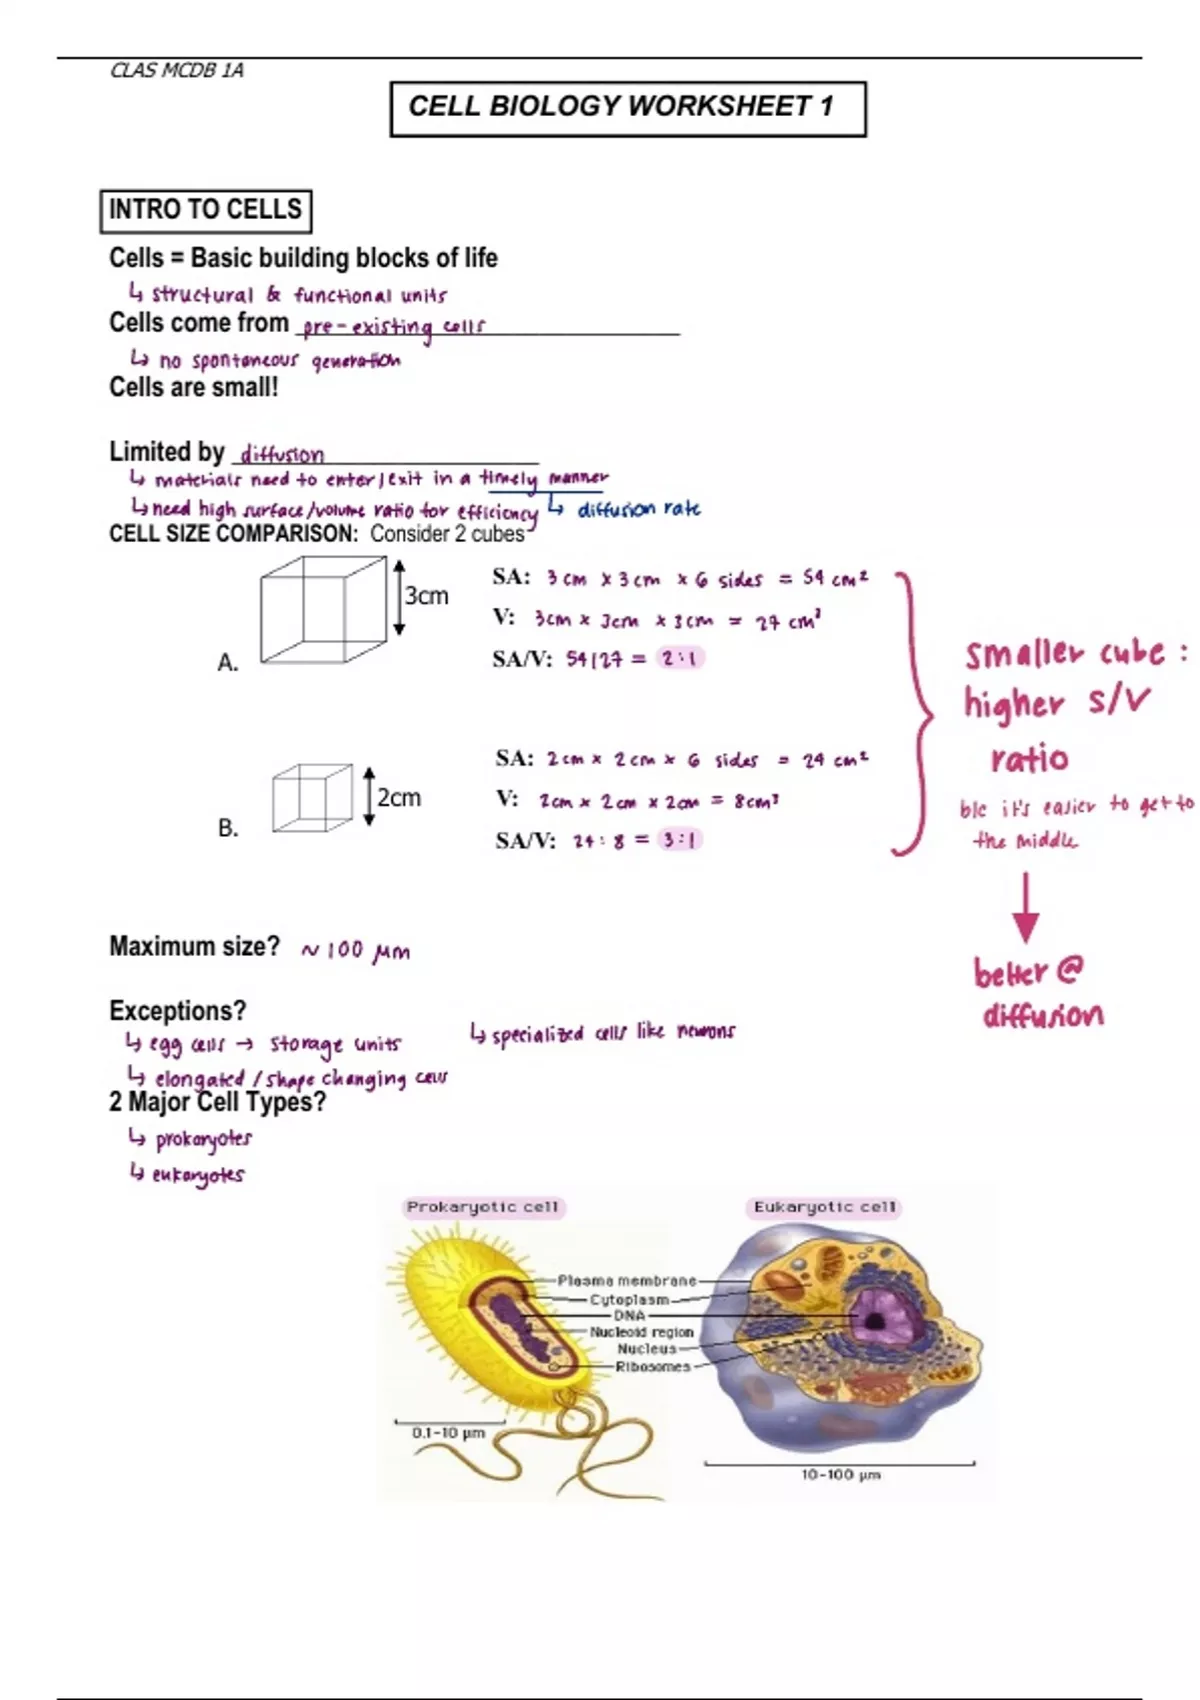 CLAS MCDB 1A
CELL BIOLOGY WORKSHEET 1
INTRO TO CELLS
Cells = Basic building blocks of life
↳ structural & functional units
Cells come from pre-existing cells
↳ no spontaneous generation
Cells are small!
Limited by diffusion
↳ materials need to enter/exit in a timely manner
↳ need high surface/volume ratio for efficiency ↳ diffusion rate
CELL SIZE COMPARISON: Consider 2 cubes
A.
3cm
SA: 3 cm x 3 cm x 6 sides = 54 cm²
V: 3cm x 3cm x 3cm = 27 cm³
SA/V: 54/27 = 2:1
B.
2cm
SA: 2cm x 2cm x 6 sides = 24 cm²
V: 2cm x 2cm x 2cm = 8cm³
SA/V: 24:8 = 3:1
smaller cube:
higher S/V
ratio
b/c it's easier to get to
the middle
better @
diffusion
Maximum size? ~100 µm
Exceptions?
↳ egg cells → storage units ↳ specialized cells like neurons
↳ elongated / shape changing cells
2 Major Cell Types?
↳ prokaryotes
↳ eukaryotes
Prokaryotic cell
Eukaryotic cell
Plasma membrane
Cytoplasm
DNA
Nucleoid region
Nucleus
Ribosomes
0.1-10 µm
10-100 µm